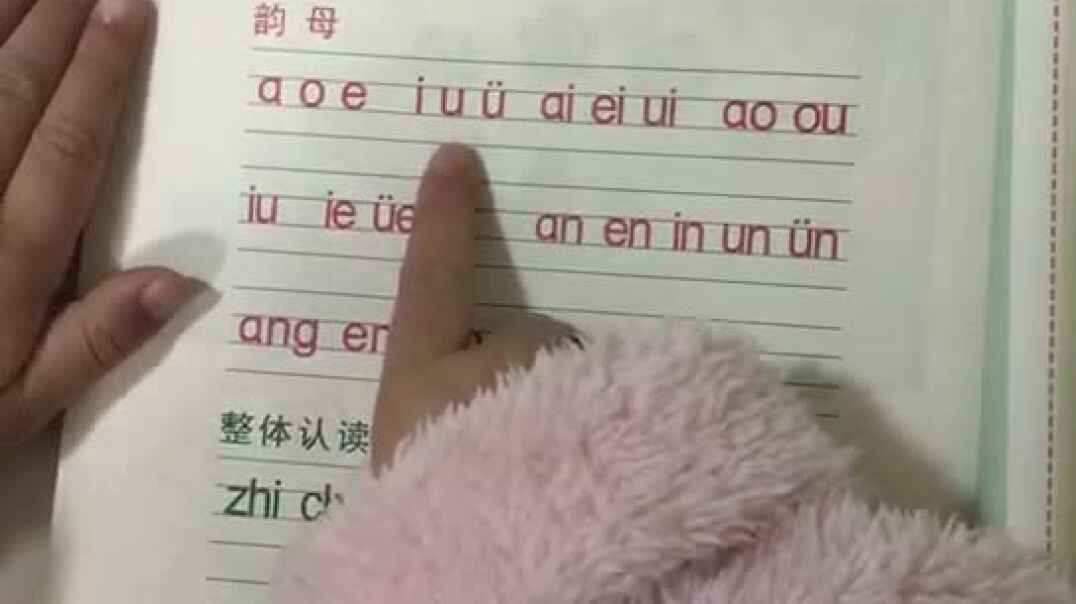 韵母
a o e i u ü ai ei ui ao ou
iu ie üe an en in un ün
ang
整体认读
zhi